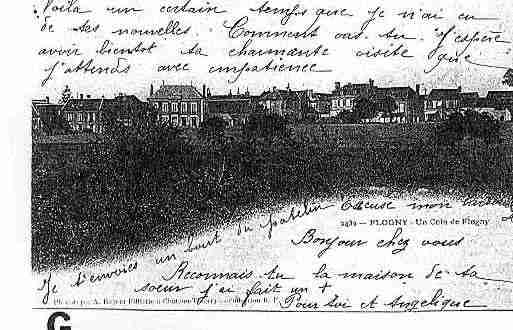 Voilà un certain temps que je n'ai eu
de tes nouvelles. Comment vas-tu. J'espère
avoir bientôt ta charmante visite que
j'attends avec impatience
Excuse mon
2482 — FLOGNY - Un Coin de Flogny
Je t'envoies un bout du patelin
Bonjour chez vous
Reconnais tu la maison de ta
soeur j'ai fait un +
Pour toi et Angélique
G